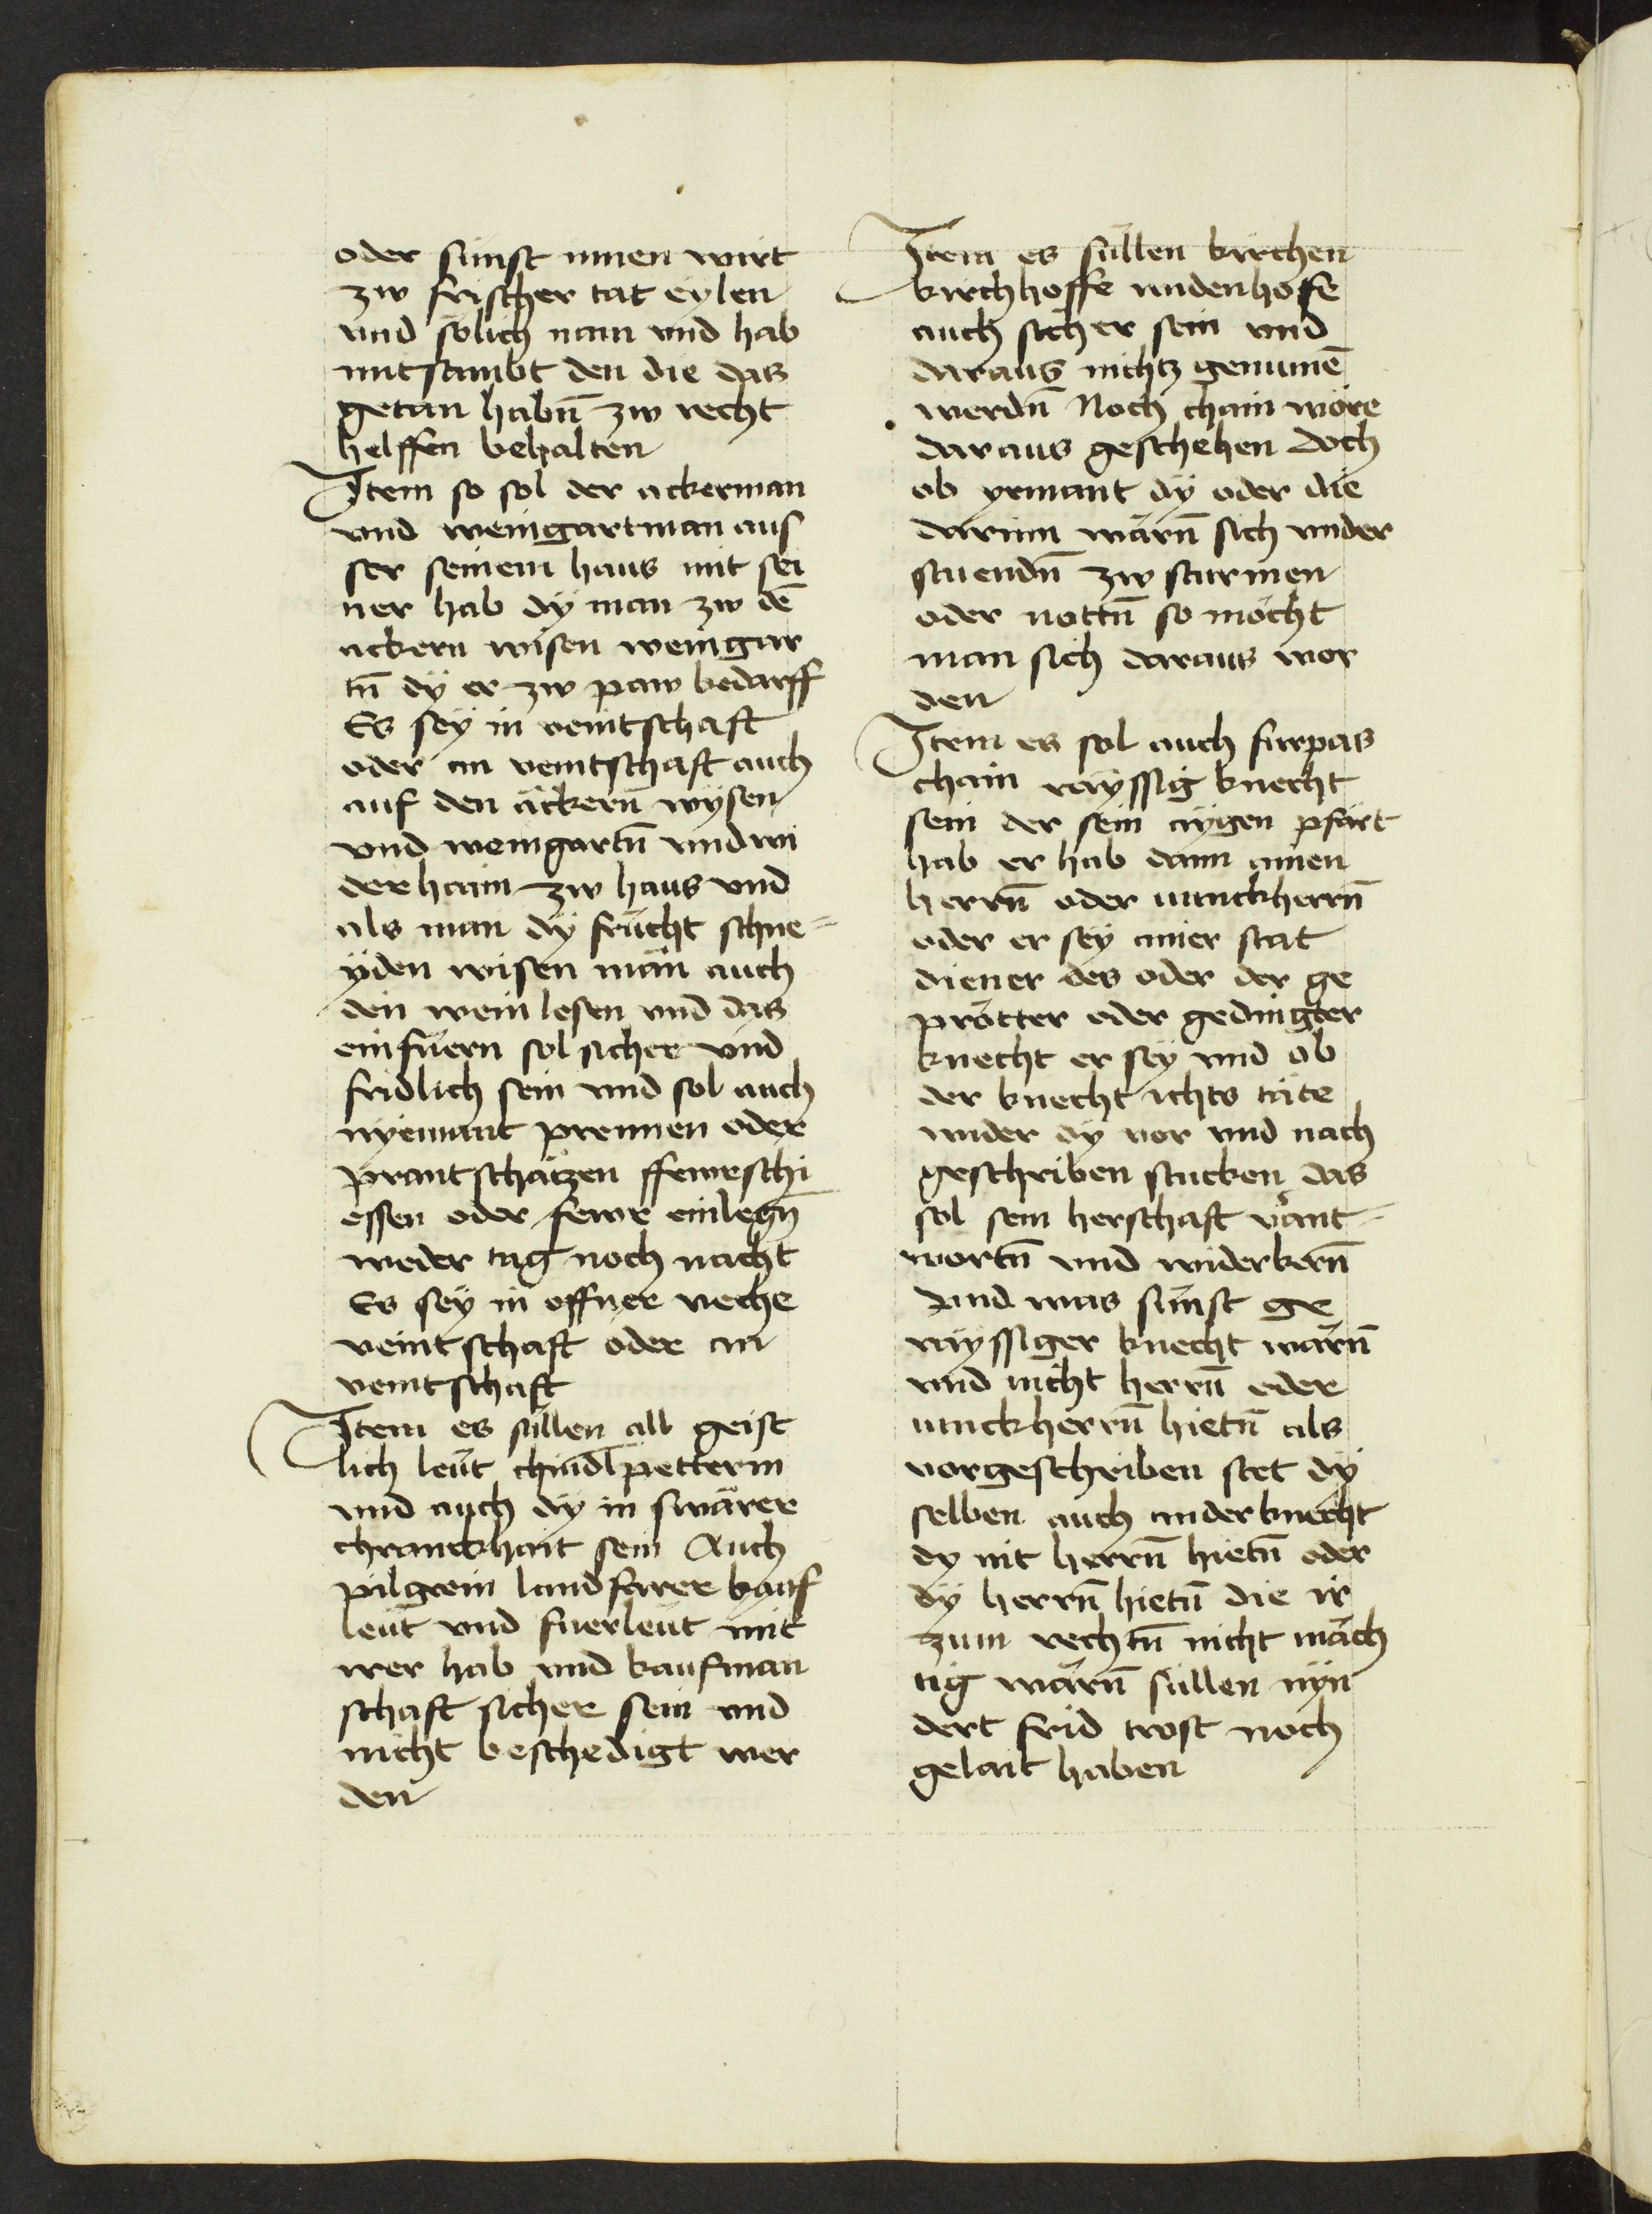 oder sünst innen wirt
zw frischer tat eylen
vnd sölich nam vnd hab
mitsambt den die das
getan habn̄ zw recht
helffen behalten
Item so sol der ackerman
vnd weingartman aus
ser seinem haus mit sei
ner hab dÿ man zw dē
ackern wisen weingar
tn̄ dÿ er zw paw bedarff
Es seÿ in veintschaft
oder an veintschaft auch
auf den äckern̄ wysen
vnd weingartn̄ vnd wi
der haim zw haus vnd
als man dÿ frücht schne=
ÿden wisen män auch
den wein lesen vnd das
einfüern sol sicher vnd
fridlich sein vnd sol auch
nÿemant prennen oder
prantschätzen ffewrschi
essen oder fewr einlegn̄
weder tag noch nacht
Es seÿ in offner veche
veintschaft oder an
veintschaft
Item es süllen all geist
lich leüt chindlpetterin
vnd auch dÿ in swärer
chranckhait sein Auch
pilgrein landfarer kauf
leüt vnd fuerleüt mit
wer hab vnd kaufman
schaft sicher sein vnd
nicht beschedigt wer
den
Item es süllen kirchen
kirchhoffe widenhofe
auch sicher sein vnd
daraus nichtz genumē
werdn̄ Noch chain wöre
daraus geschehen doch
ob yemant dÿ oder die
darinn wärn̄ sich vnder
stuendn̄ zw sturmen
oder nottn̄ so möcht
man sich daraus wor
den
Item es sol auch furpas
chain raÿssig knecht
sein der sein aÿgen pfärt
hab er hab dann ainen
herrn̄ oder iunckherrn̄
oder er seÿ ainer stat
diener des oder der ge
prötter oder gedingter
knecht er seÿ vnd ob
der knecht ichts täte
wider dÿ vor vnd nach
geschriben stucken das
sol sein herschaft vant=
wortn̄ vnd widerkern̄
Vnd was sünst ge
raÿssiger knecht wärn̄
vnd nicht herrn̄ oder
iunckherrn̄ hietn̄ als
vorgeschriben stet dÿ
selben auch ander knecht
dy nit herrn̄ hietn̄ oder
dÿ herrn̄ hietn̄ die ir
zum rechtn̄ nicht mäch
tig wärn̄ süllen nÿn
dert frid trost noch
gelait haben